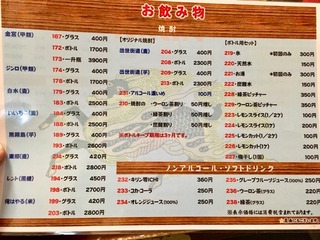 お飲み物
焼酎
金宮(甲類)
187・グラス 400円
172・ボトル 1800円
173・一升瓶 3900円
ジンロ(甲類)
178・グラス 400円
177・ボトル 2000円
白水(麦)
184・グラス 400円
183・ボトル 2500円
いいちこ(麦)
186・グラス 400円
黒霧島(芋)
193・グラス 400円
192・ボトル 2500円
214・グラス 420円
218・ボトル 2800円
れんと(黒糖)
199・グラス 450円
198・ボトル 2700円
203・ボトル 2800円
【オリジナル焼酎】
出世街道(麦)
204・グラス 400円
208・ボトル 2200円
出世街道(芋)
213・グラス 400円
209・ボトル 2200円
231・アルコール濃いめ 100円
210・焼酎・ウーロン茶割り 50円増し
緑茶割り 50円増し
豆乳割り 50円増し
※ボトルキープ期限は3ヶ月です。
【ボトル用セット】
219・氷 ※初回のみ 300円
220・天然水 150円
221・お湯 ※初回のみ 300円
222・炭酸水 150円
228・緑茶ピッチャー 300円
229・ウーロン茶ピッチャー 300円
224・レモンスライス(1ケ) 100円
225・レモンスライス(7ケ) 400円
226・レモン生絞り 100円
227・梅干し(1個) 100円
ノンアルコール・ソフトドリンク
232・キリン零ICHI 360円
233・コカコーラ 250円
234・オレンジジュース(100%) 250円
235・グレープフルーツジュース(100%) 250円
236・ウーロン茶(グラス) 200円
238・緑茶(グラス) 200円